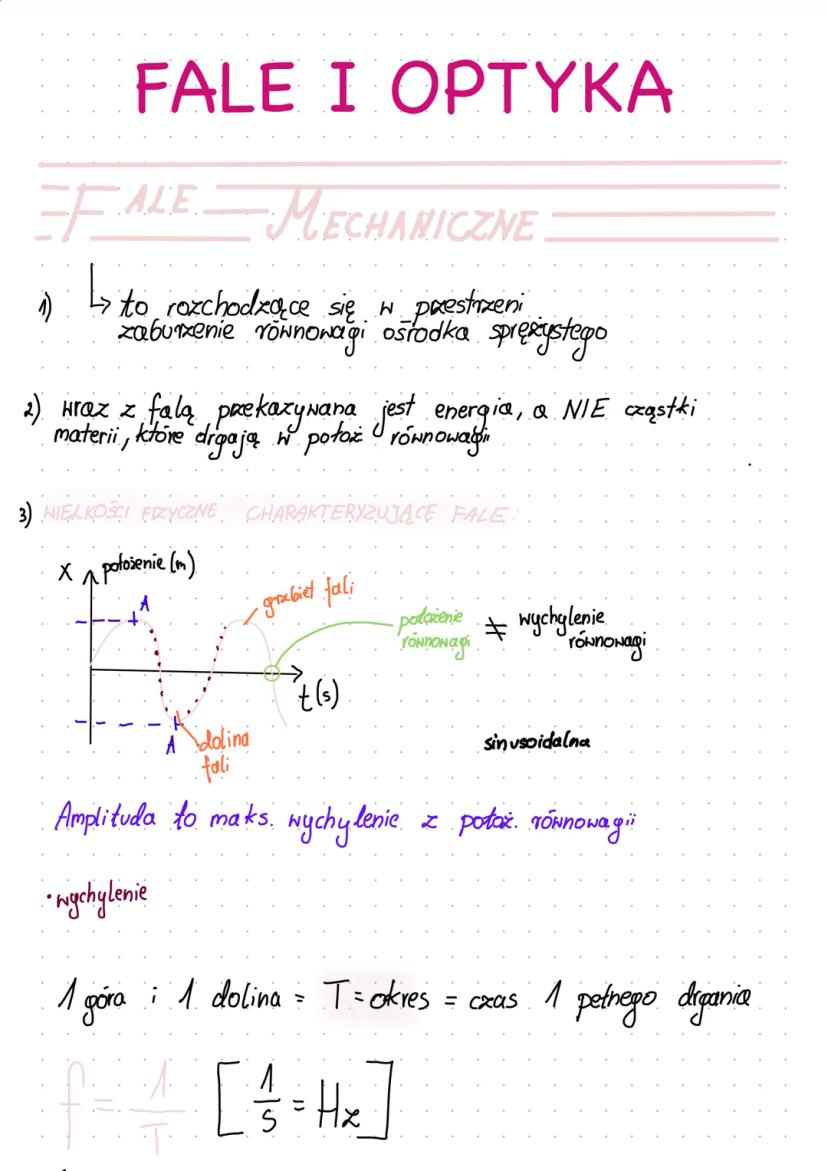 FALE I OPTYKA
FALE MECHANICZNE
1) ↳ to rozchodzące się w przestrzeni
zaburzenie równowagi ośrodka sprężystego
2) wraz z falą przekazywana jest energia, a NIE cząstki
materii, które drgają w położ równowagii
3) WIELKOŚCI FIZYCZNE CHARAKTERYZUJĄCE FALE:
X położenie (m)
A
grzbiet fali
położenie
równowagi
≠ wychylenie
równowagi
t(s)
A
dolina
fali
sinusoidalna
Amplituda to maks. wychylenie z położ. równowagii
• wychylenie
1 góra i 1 dolina = T = okres = czas 1 pełnego drgania
f = 1/T [1/s = Hz]